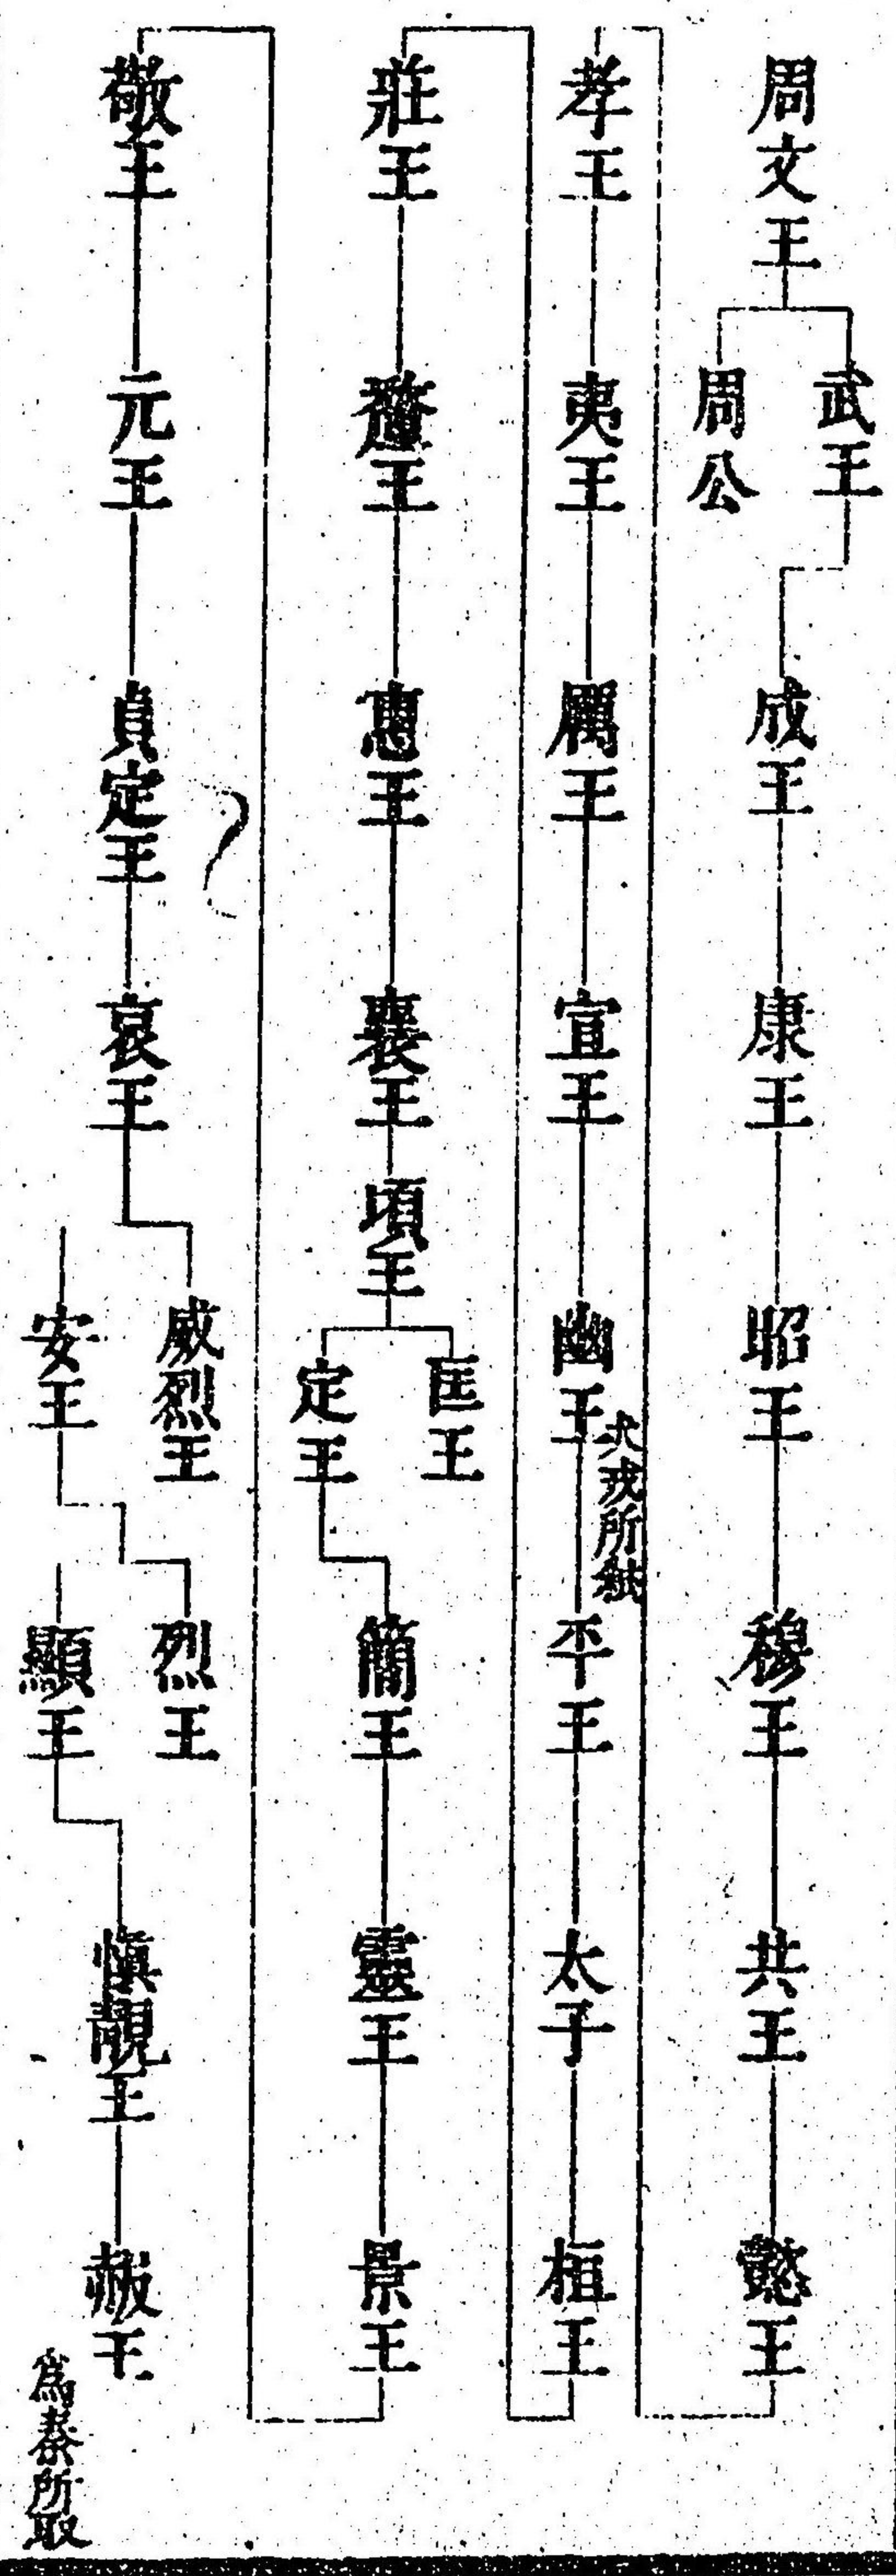 周文王
武王
周公
成王
康王
昭王
穆王
共王
懿王
孝王
夷王
厲王
宣王
幽王
犬戎所弒
平王
太子
桓王
莊王
釐王
惠王
襄王
頃王
匡王
定王
簡王
靈王
景王
敬王
元王
貞定王
哀王
威烈王
安王
烈王
顯王
慎靚王
赧王
為秦所取